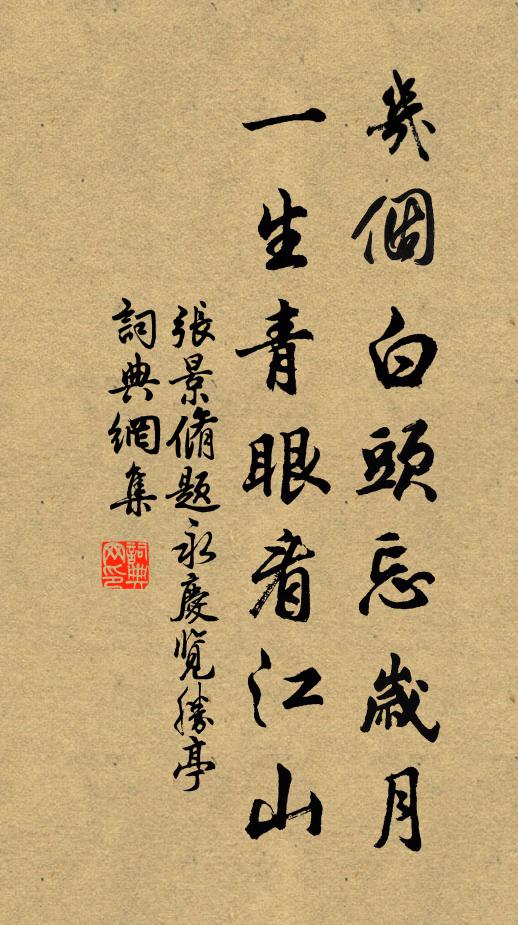 幾個白頭忘歲月
一生青眼看江山
張景脩題永慶覽勝亭
詞典網集
詞典網印